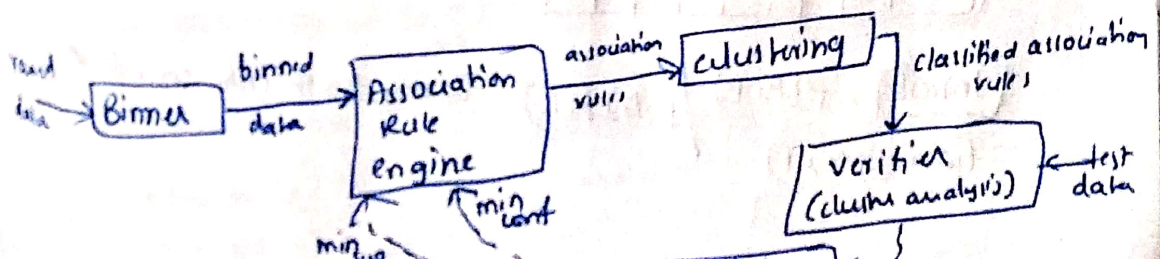 data
Binner
binned
data
Association
Rule
engine
association
rules
clustering
classified association
rules
verifier
(cluster analysis)
test
data
min
conf
min